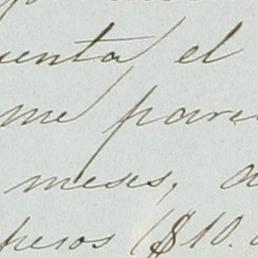 uenta el
me pare
meses, a
pesos ($10.